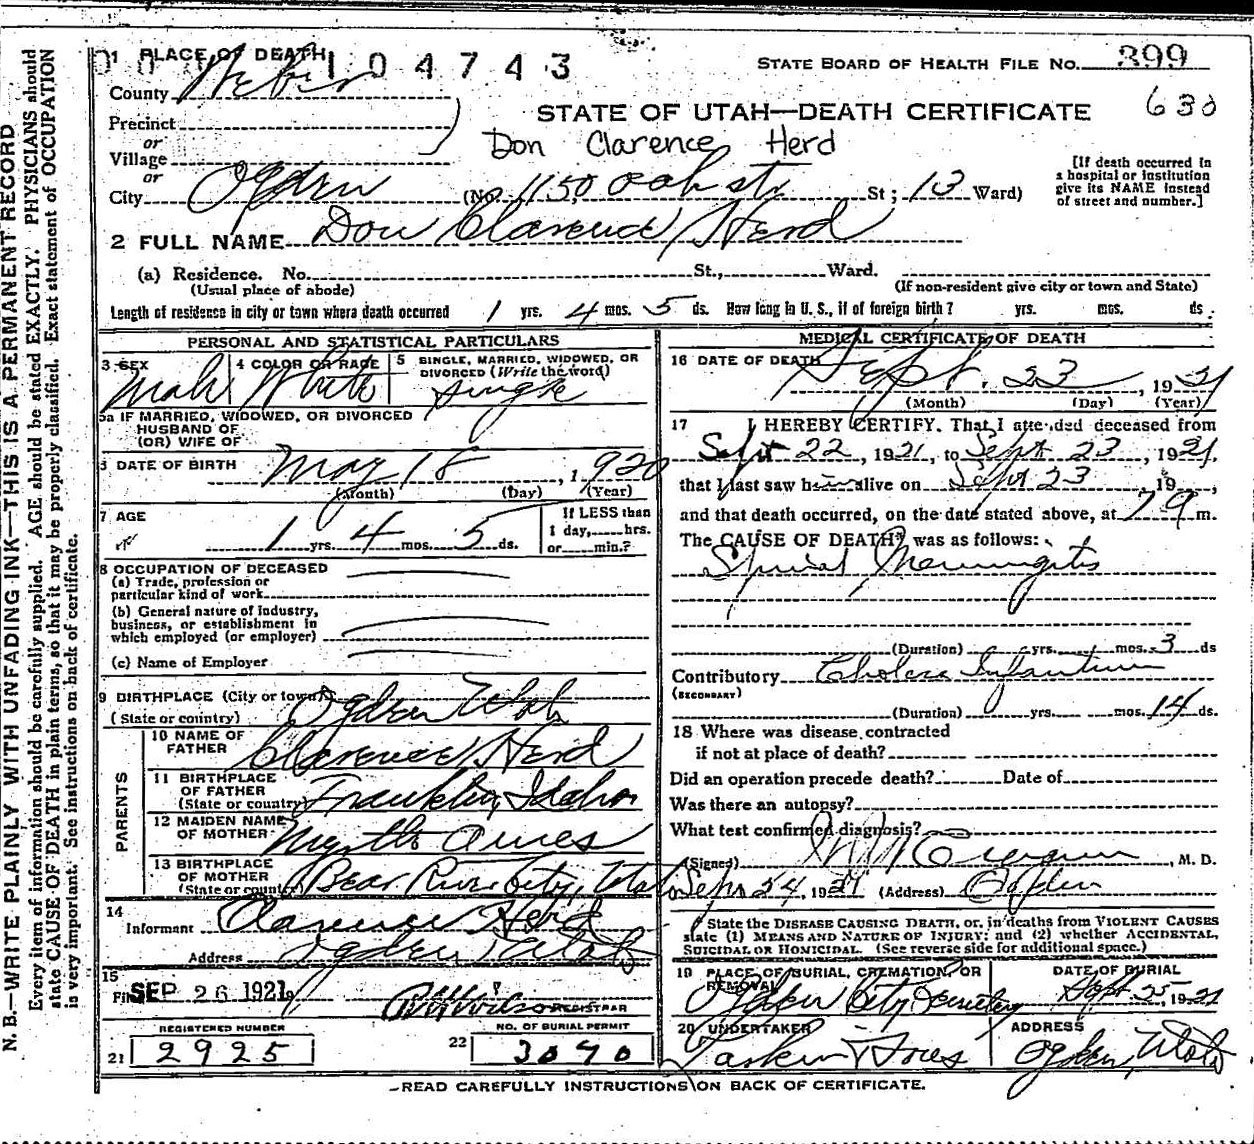 N. B.—WRITE PLAINLY WITH UNFADING INK—THIS IS A PERMANENT RECORD
Every item of information should be carefully supplied. AGE should be stated EXACTLY. PHYSICIANS should
state CAUSE OF DEATH in plain terms, so that it may be properly classified. Exact statement of OCCUPATION
is very important. See instructions on back of certificate.
1 PLACE OF DEATH 104743
STATE BOARD OF HEALTH FILE No. 399
County Weber
630
STATE OF UTAH—DEATH CERTIFICATE
Precinct
or
Don Clarence Herd
Village
or
[If death occurred in
a hospital or institution
give its NAME instead
of street and number.]
City Ogden (No. 1150 Oak str St; 13 Ward)
2 FULL NAME Don Clarence Herd
(a) Residence. No. St., Ward.
(Usual place of abode) (If non-resident give city or town and State)
Length of residence in city or town where death occurred 1 yrs. 4 mos. 5 ds. How long in U. S., if of foreign birth? yrs. mos. ds.
PERSONAL AND STATISTICAL PARTICULARS
3 SEX Male 4 COLOR OR RACE White 5 SINGLE, MARRIED, WIDOWED, OR
DIVORCED (Write the word) Single
5a IF MARRIED, WIDOWED, OR DIVORCED
HUSBAND OF
(OR) WIFE OF
6 DATE OF BIRTH May 18, 1920
(Month) (Day) (Year)
7 AGE 1 yrs. 4 mos. 5 ds.
If LESS than
1 day, hrs.
or min.?
8 OCCUPATION OF DECEASED
(a) Trade, profession or
particular kind of work
(b) General nature of industry,
business, or establishment in
which employed (or employer)
(c) Name of Employer
9 BIRTHPLACE (City or town)
(State or country) Ogden Utah
PARENTS
10 NAME OF
FATHER Clarence Herd
11 BIRTHPLACE
OF FATHER
(State or country) Franklin, Idaho
12 MAIDEN NAME
OF MOTHER Myrtle Ames
13 BIRTHPLACE
OF MOTHER
(State or country) Bear River City, Utah
14
Informant Clarence Herd
Address Ogden Utah
15
Filed SEP 26 1921
REGISTRAR
REGISTERED NUMBER
21 2925
NO. OF BURIAL PERMIT
22 3070
MEDICAL CERTIFICATE OF DEATH
16 DATE OF DEATH Sept. 23, 1921
(Month) (Day) (Year)
17 I HEREBY CERTIFY, That I attended deceased from
Sept 22, 1921, to Sept 23, 1921,
that I last saw him alive on Sept 23, 19 ,
and that death occurred, on the date stated above, at 7 9 m.
The CAUSE OF DEATH was as follows:
Spinal Meningitis
(Duration) yrs. mos. 3 ds
Contributory Cholera Infantum
(SECONDARY)
(Duration) yrs. mos. 14 ds.
18 Where was disease contracted
if not at place of death?
Did an operation precede death? Date of
Was there an autopsy?
What test confirmed diagnosis?
(Signed) , M. D.
Sept 24, 1921 (Address) Ogden
State the DISEASE CAUSING DEATH, or, in deaths from VIOLENT CAUSES
state (1) MEANS AND NATURE OF INJURY; and (2) whether ACCIDENTAL,
SUICIDAL OR HOMICIDAL. (See reverse side for additional space.)
19 PLACE OF BURIAL, CREMATION, OR
REMOVAL
Ogden City Cemetery
DATE OF BURIAL
Sept. 25, 1921
20 UNDERTAKER
Larkin & Sons
ADDRESS
Ogden, Utah
READ CAREFULLY INSTRUCTIONS ON BACK OF CERTIFICATE.